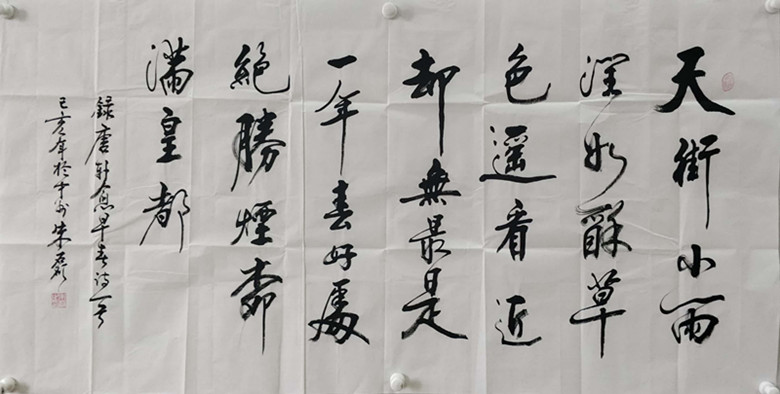 天街小雨
潤如酥草
色遥看近
却無最是
一年春好處
絕勝煙柳
滿皇都
錄唐韩愈早春诗一首
己亥年於 朱磊